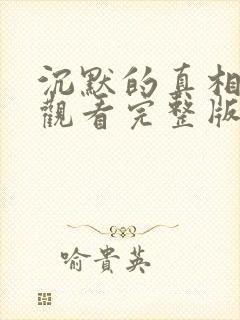 沉默的真相
觀看完整版
喻貴英